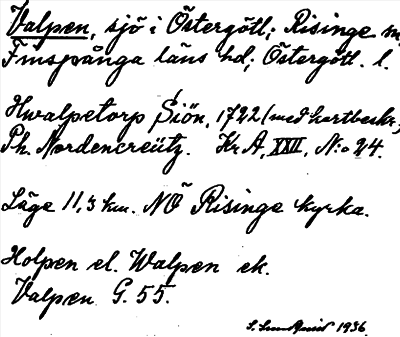 Valpen, sjö i Östergötl; Risinge sn,
Finspånga läns hd; Östergötl. l.
Hwalpetorp Siön, 1722 (med kartbeskr.;
Ph. Nordencreütz. Kr. A, XXII, N:o 24.
Läge 11,3 km. NÖ Risinge kyrka.
Holpen el. Walpen ek.
Valpen G. 55.
S. Lundkvist 1936.